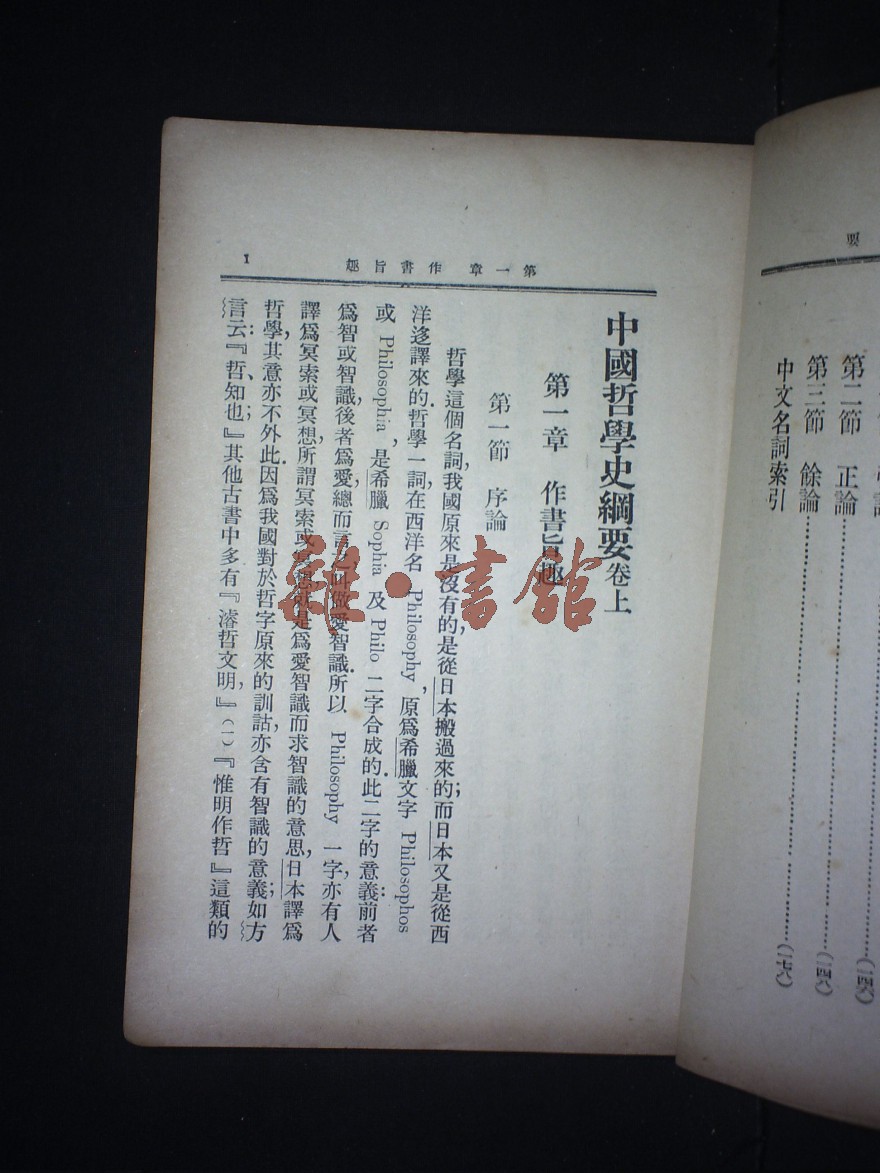 要
第二節 正論……(一四六)
第三節 餘論……(一四八)
中文名詞索引……(一七六)
第一章 作書旨趣
1
中國哲學史綱要卷上
第一章 作書旨趣
第一節 序論
哲學這個名詞,我國原來是沒有的,是從日本搬過來的;而日本又是從西
洋迻譯來的.哲學一詞,在西洋名 Philosophy,原爲希臘文字 Philosophos
或 Philosophia,是希臘 Sophia 及 Philo 二字合成的.此二字的意義:前者
爲智或智識,後者爲愛,總而言之,叫做愛智識.所以 Philosophy 一字,亦有人
譯爲冥索或冥想.所謂冥索或冥想,就是爲愛智識而求智識的意思,日本譯爲
哲學,其意亦不外此.因爲我國對於哲字原來的訓詁,亦含有智識的意義;如方
言云:『哲、知也;』其他古書中多有『濬哲文明,』(一)『惟明作哲』這類的
雜·書館